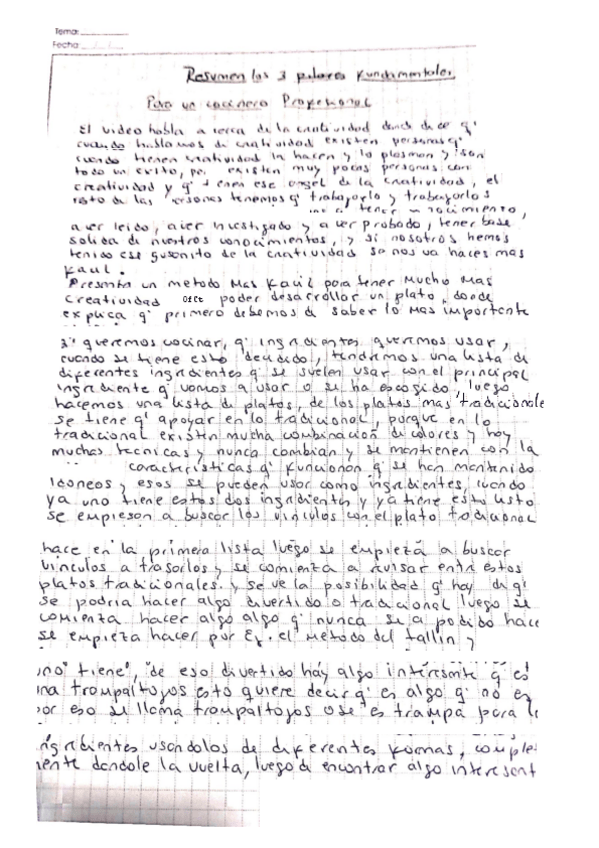 Tema:
Fecha:
Resumen los 3 pilares Fundamentales
Para un cocinero Profesional
El video habla a cerca de la creatividad donde dice q'
cuando hablamos de creatividad existen personas q'
cuando tienen creatividad la hacen y lo plasman y son
todo un exito, pe existen muy pocas personas con
creatividad y q' tienen ese angel de la creatividad, el
resto de las personas tenemos q' trabajarlo y trabajarlos
a tener conocimiento,
a ver leido, a ver investigado y a ver probado, tener base
solida de nuestros conocimientos, y si nosotros hemos
tenido ese gusanito de la creatividad se nos va haces mas
facil.
Presenta un metodo mas facil para tener mucho mas
creatividad poder desarrollar un plato, donde
explica q' primero debemos de saber lo mas importante
si queremos cocinar, q' ingredientes queremos usar,
cuando se tiene esto decidido, tendremos una lista de
diferentes ingredientes q' se suelen usar con el principal
ingrediente q' vamos a usar o se ha escogido, luego
hacemos una lista de platos, de los platos mas tradicionale
se tiene q' apoyar en lo tradicional, porque en lo
tradicional existen mucha combinación de colores y hay
muchas tecnicas y nunca cambian y se mantienen con la
caracteristicas q' funcionan q' se han mantenido
idoneos y esos se pueden usar como ingredientes, cuando
ya uno tiene estos dos ingredientes y ya tiene esta lista
se empiesan a buscar los vinculos con el plato tradicional
hace en la primera lista luego se empieza a buscar
vinculos a trasarlos y se comienza a revisar entre estos
platos tradicionales. y se ve la posibilidad q' hay de q'
se podria hacer algo divertido o tradicional luego se
comienza hacer algo algo q' nunca se a podido hace
se empieza hacer por Ej. el metodo del fallin y
uno tiene, de eso divertido hay algo interesante q' es
una trompaltojos esto quiere decir q' es algo q' no es
por eso se llama trompaltojos o se es trampa para l
ingredientes usandolos de diferentes formas, comple
mente dandole la vuelta, luego de encontrar algo interesant